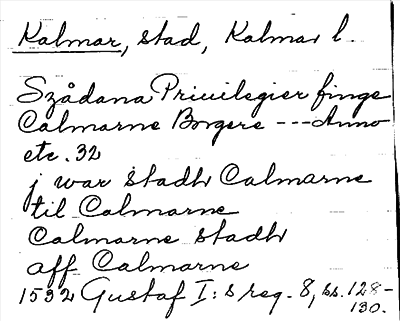 Kalmar, stad, Kalmar l.
Szådana Priuilegier finge
Calmarne Borgere --- Anno
etc. 32
j war stadh Calmarne
til Calmarne
Calmarne stadh
aff Calmarne
1532 Gustaf I:s reg. 8, ss. 128-
130.